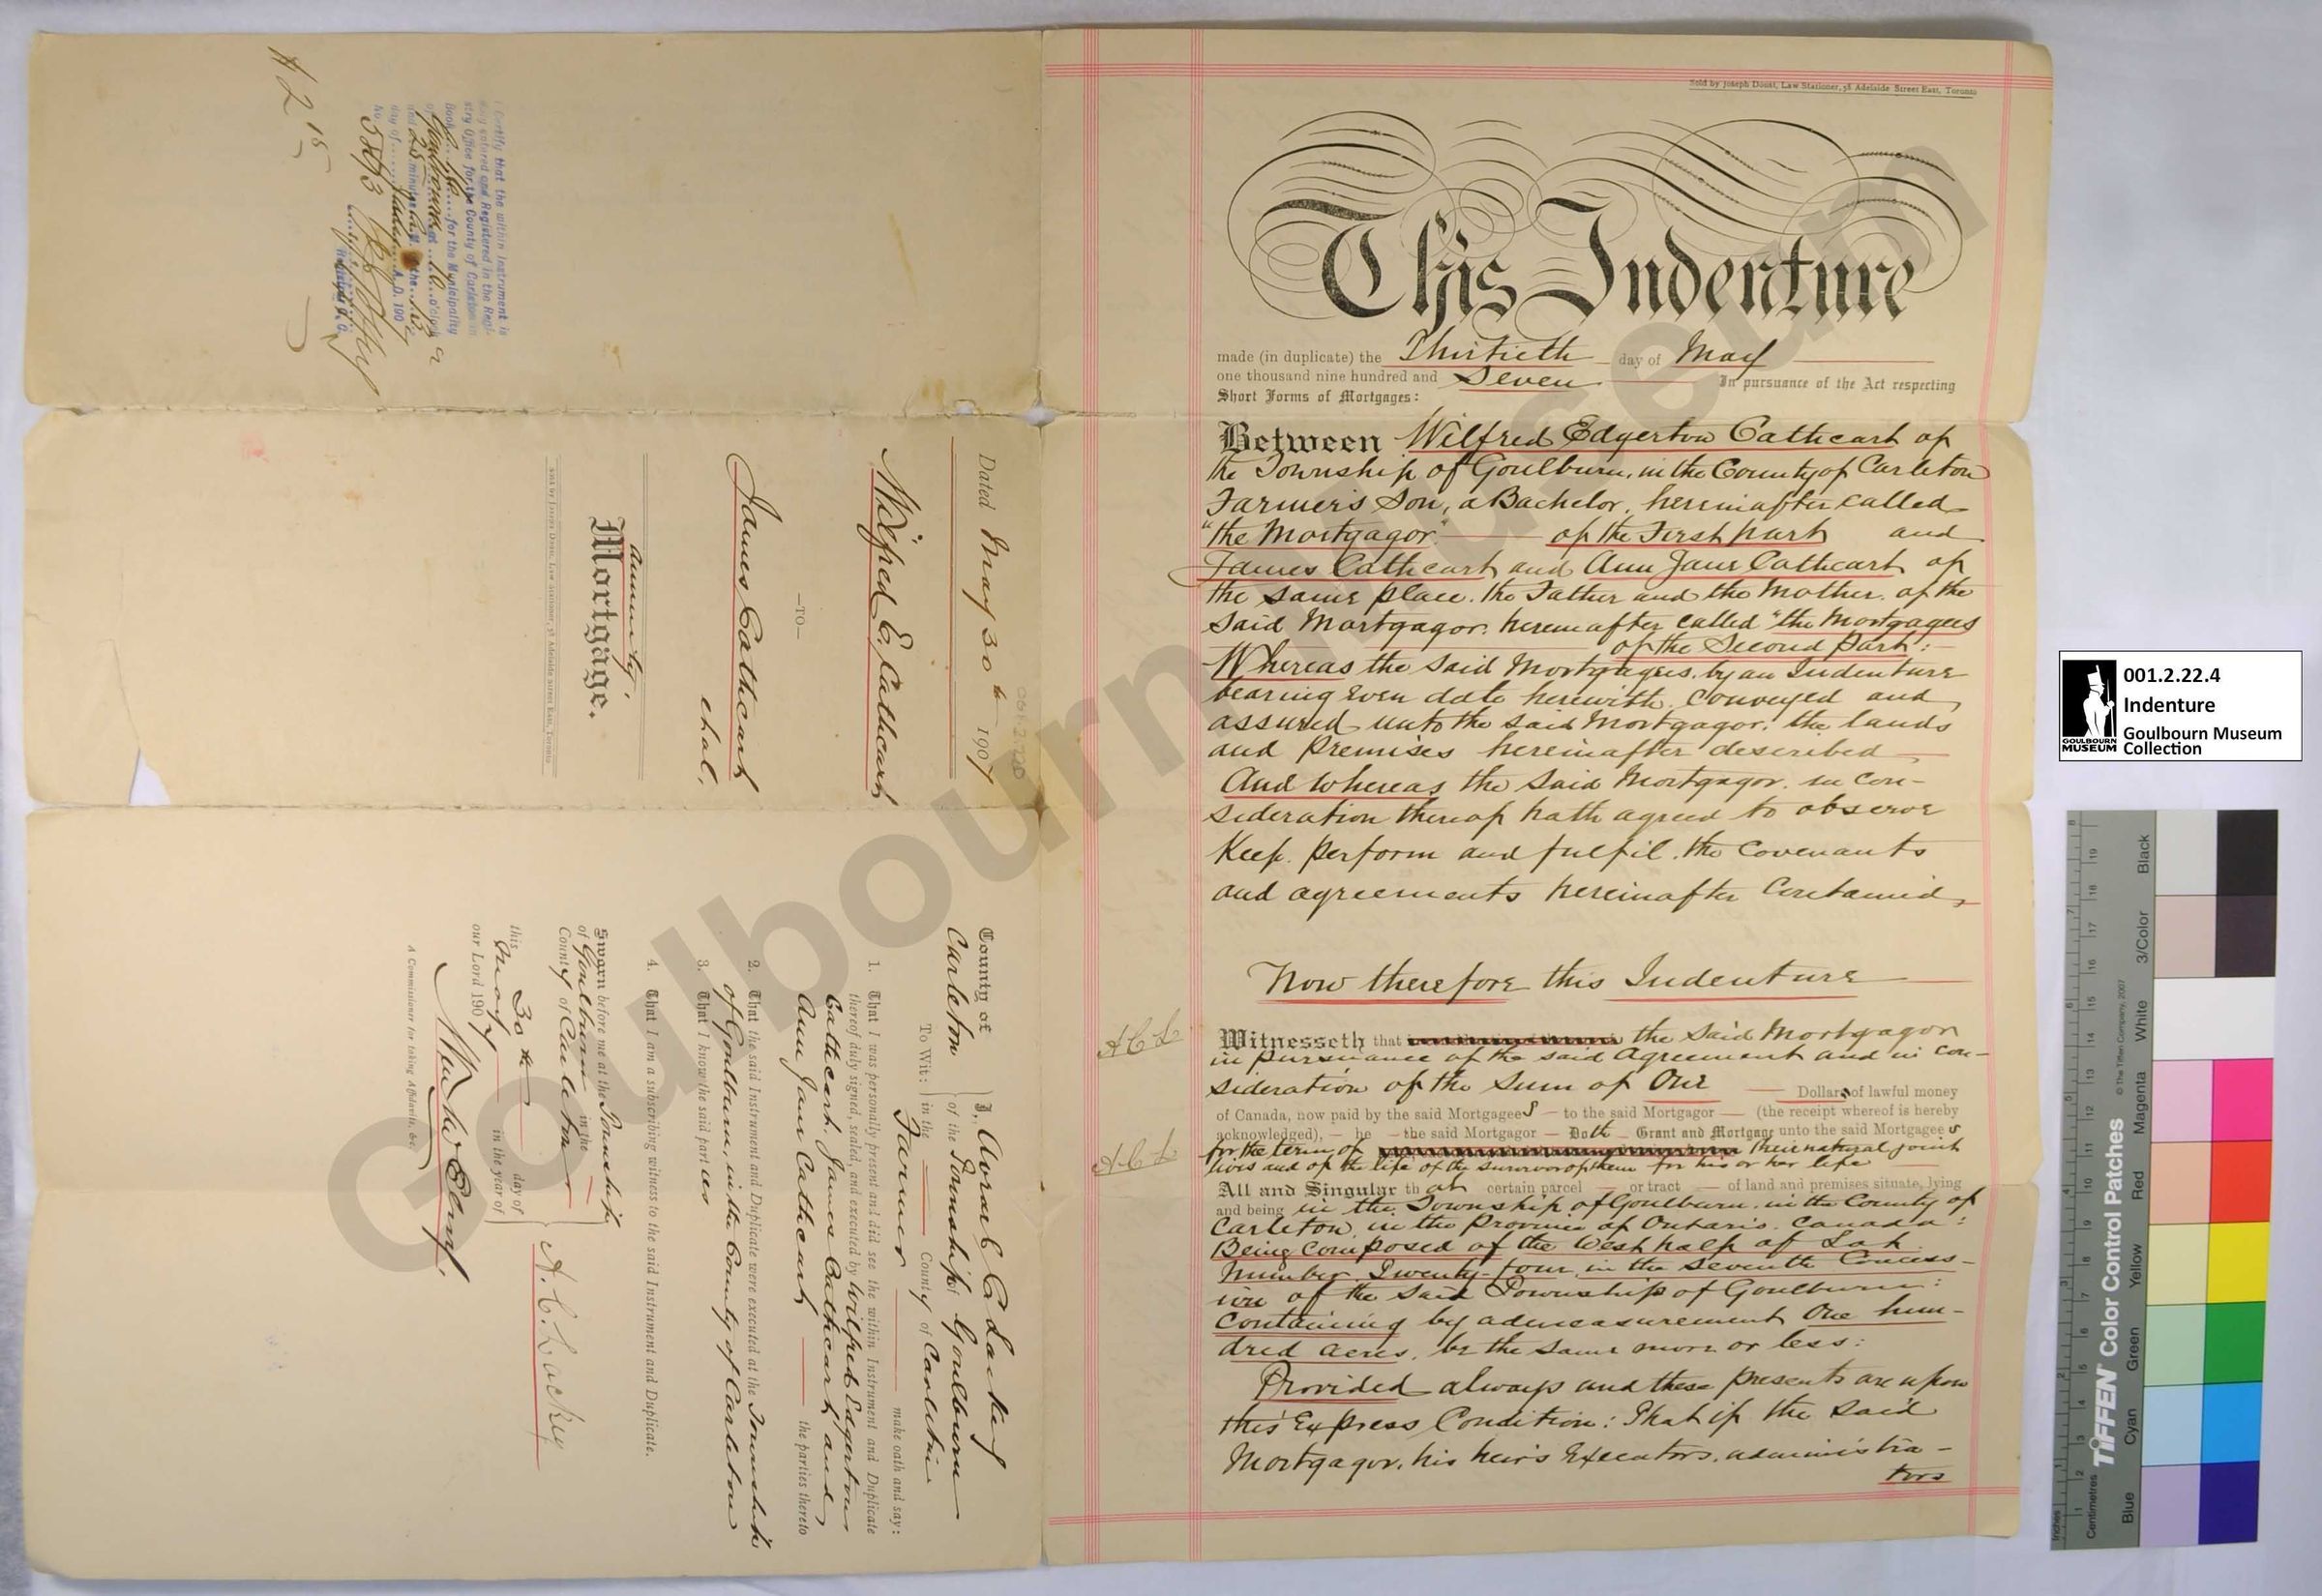 Sold by Joseph Doust, Law Stationer, 58 Adelaide Street East, Toronto
This Indenture
made (in duplicate) the Thirtieth day of May
one thousand nine hundred and Seven In pursuance of the Act respecting
Short Forms of Mortgages:
Between Wilfred Edgerton Cathcart of
the Township of Goulburn, in the County of Carleton
Farmer's Son, a Bachelor, hereinafter called
"the Mortgagor" of the First part and
James Cathcart and Ann Jane Cathcart of
the same place. the Father and the Mother. of the
said Mortgagor. hereinafter called "the Mortgagees
of the Second Part:
Whereas the said Mortgagees. by an Indenture
bearing even date herewith. conveyed and
assured unto the said Mortgagor. the lands
and premises hereinafter described
And whereas the said Mortgagor. in con-
sideration thereof hath agreed to observe
Keep. perform and fulfil. the covenants
and agreements hereinafter contained,
Now therefore this Indenture
A C L
Witnesseth that the said Mortgagor
in pursuance of the said Agreement and in con-
sideration of the sum of One Dollar of lawful money
of Canada, now paid by the said Mortgagees to the said Mortgagor (the receipt whereof is hereby
acknowledged), he the said Mortgagor Doth Grant and Mortgage unto the said Mortgagees
A C L
for the term of their natural joint
lives and of the life of the survivor of them for his or her life
All and Singular that certain parcel or tract of land and premises situate, lying
and being in the Township of Goulburn. in the County of
Carleton in the Province of Ontario. Canada:
Being composed of the West half of Lot
Number Twenty-four in the seventh Concess-
ion of the said Township of Goulburn:
Containing by admeasurement One hun-
dred acres. be the same more or less:
Provided always and these presents are upon
this Express Condition: That if the said
Mortgagor, his heirs Executors. administra-
tors
$2 15
I Certify that the within Instrument is
duly entered and Registered in the Regi-
stry Office for the County of Carleton in
Book for the Municipality
of Goulbourn at 10 o'clock
and 25 minutes A.M. the
day of A.D. 1907
No. 5893
Dated May 30th 1907
Wilfred E. Cathcart
—TO—
James Cathcart
et al,
Annuity
Mortgage.
Sold by Joseph Doust, Law Stationer, 58 Adelaide Street East, Toronto
County of
Carleton
To Wit:
I, Avoral C Lackey
of the Township of Goulburn
in the County of Carleton
Farmer make oath and say:
1. That I was personally present and did see the within Instrument and Duplicate
thereof duly signed, sealed, and executed by Wilfred Edgerton
Cathcart. James Cathcart and
Ann Jane Cathcart the parties thereto
2. That the said Instrument and Duplicate were executed at the Township
of Goulburn, in the County of Carleton
3. That I know the said parties
4. That I am a subscribing witness to the said Instrument and Duplicate.
Sworn before me at the Township
of Goulburn in the
County of Carleton
this 30th day of
May in the year of
our Lord 1907
A. C. Lackey
A Commissioner for taking Affidavits, &c.
Goulbourn Museum
001.2.22.4
Indenture
Goulbourn Museum
Collection
GOULBOURN
MUSEUM
TIFFEN Color Control Patches
© The Tiffen Company, 2007
Inches
Centimetres
Blue
Cyan
Green
Yellow
Red
Magenta
White
3/Color
Black